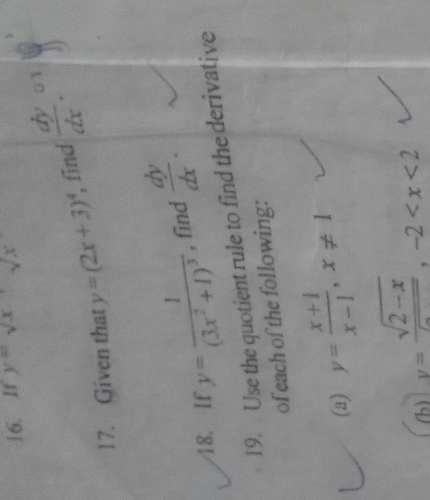 16. If y = √x + √x
17. Given that y = (2x + 3)⁴, find dy/dx.
18. If y = 1/(3x² + 1)³, find dy/dx.
19. Use the quotient rule to find the derivative
of each of the following:
(a) y = x + 1/x − 1, x ≠ 1
(b) y = √2 − x, −2 < x < 2